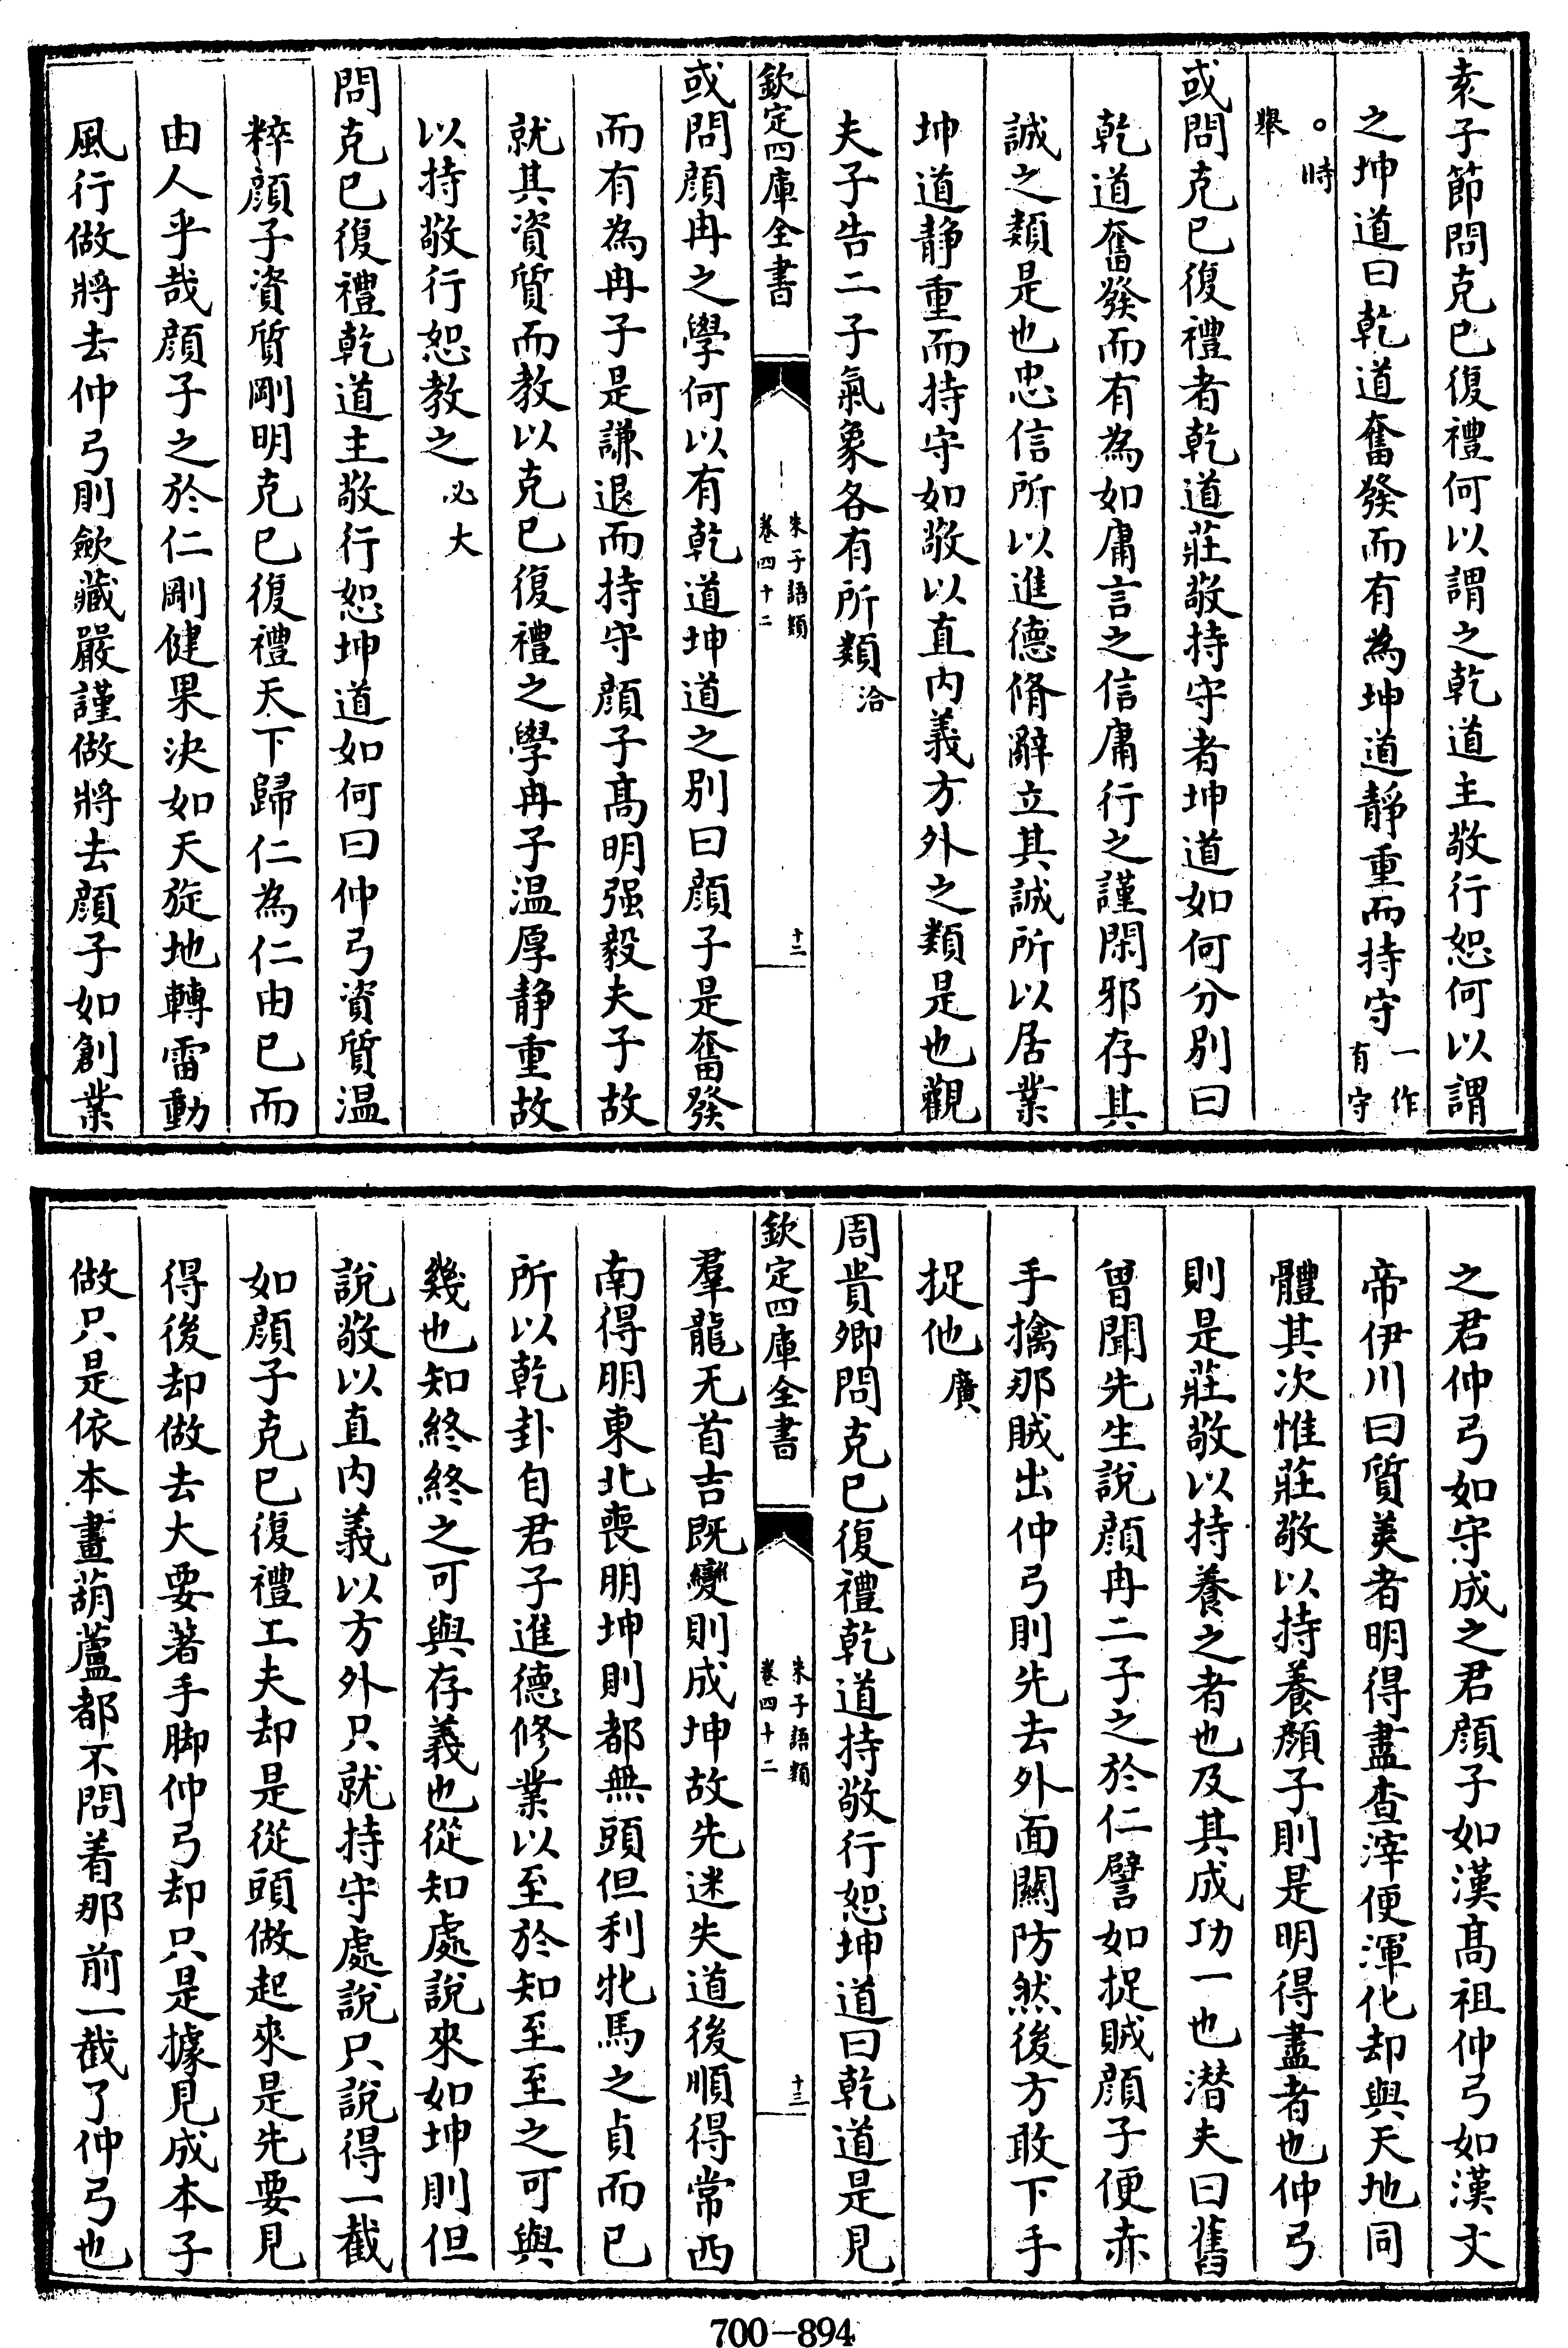 袁子節問克己復禮何以謂之乾道主敬行恕何以謂
之坤道曰乾道奮發而有為坤道靜重而持守一作有守
。時舉
或問克己復禮者乾道莊敬持守者坤道如何分别曰
乾道奮發而有為如庸言之信庸行之謹閑邪存其
誠之類是也忠信所以進德脩辭立其誠所以居業
坤道靜重而持守如敬以直内義方外之類是也觀
夫子告二子氣象各有所類洽
欽定四庫全書
朱子語類
卷四十二
十二
或問顔冉之學何以有乾道坤道之别曰顔子是奮發
而有為冉子是謙退而持守顔子髙明强毅夫子故
就其資質而教以克己復禮之學冉子温厚靜重故
以持敬行恕教之必大
問克己復禮乾道主敬行恕坤道如何曰仲弓資質温
粹顔子資質剛明克己復禮天下歸仁為仁由己而
由人乎哉顔子之於仁剛健果決如天旋地轉雷動
風行做將去仲弓則歛藏嚴謹做將去顔子如創業
之君仲弓如守成之君顔子如漢髙祖仲弓如漢文
帝伊川曰質美者明得盡查滓便渾化却與天地同
體其次惟莊敬以持養顔子則是明得盡者也仲弓
則是莊敬以持養之者也及其成功一也潛夫曰舊
曾聞先生說顔冉二子之於仁譬如捉賊顔子便赤
手擒那賊出仲弓則先去外面關防然後方敢下手
捉他廣
周貴卿問克己復禮乾道持敬行恕坤道曰乾道是見
欽定四庫全書
朱子語類
卷四十二
十三
羣龍无首吉既變則成坤故先迷失道後順得常西
南得朋東北喪朋坤則都無頭但利牝馬之貞而已
所以乾卦自君子進德修業以至於知至至之可與
幾也知終終之可與存義也從知處說來如坤則但
說敬以直内義以方外只就持守處說只說得一截
如顔子克己復禮工夫却是從頭做起來是先要見
得後却做去大要著手脚仲弓却只是據見成本子
做只是依本畫葫蘆都不問着那前一截了仲弓也
700-894